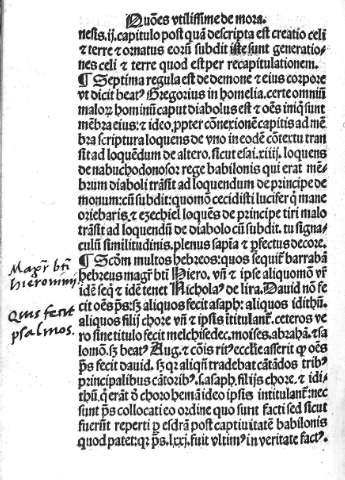 Quōes vtilissime de mora.
nesis .ij. capitulo post quā descripta est creatio celi
& terre & ornatus eorū subdit iste sunt generatio-
nes celi & terre quod est per recapitulationem.
¶ Septima regula est de demone & eius corpore
vt dicit beatꝰ Gregorius in homelia. certe omniū
maloꝝ hominū caput diabolus est & oēs iniq̄ sunt
mēbra eius: & ideo ꝓpter cōnexionē capitis ad mē
bra scriptura loquens de vno in eodē cōtextu tran
sit ad loquēdum de altero. sicut esai. xiiij. loquens
de nabuchodonosor rege babilonis qui erat mē-
brum diaboli trāsit ad loquendum de principe de
monum: cū subdit: quomō cecidisti lucifer q̄ mane
oriebaris. & ezechiel loquēs de principe tiri malo
trāsit ad loquendū de diabolo cū subdit. tu signa-
culū similitudinis. plenus sapīa & ꝑfectus decore.
¶ Scdm multos hebreos: quos sequitᷣ barrabā
hebreus magrᷣ bti Hiero. vñ & ipse aliquomō vr̄
idē seq̄ & idē tenet Nicholaꝰ de lira. Dauid nō fe
cit oēs ps̄: sꝫ aliquos fecit asaph: aliquos idithū.
aliquos filij chore vñ & ipsis ītitulantᷣ. ceteros ve
ro sine titulo fecit melchisedec. moises. abrahā. & sa
lomō. sꝫ beatꝰ Aug. & cōis ritꝰ ecclīe asserit ꝙ oēs
ps̄ fecit dauid. sꝫ qꝛ aliqñ tradebat cātādos tribꝰ
principalibus cātoribꝰ. s. asaph. filijs chore. & idi-
thū. q̄ erāt ō choro hemā ideo ipsis intitulantᷣ: nec
sunt ps̄ collocati eo ordine quo sunt facti sed sicut
fuerūt reperti ꝑ esdrā post captiuitatē babilonis
quod patet: qꝛ ps̄. lxxj. fuit vltimꝰ in veritate factꝰ.
Magr̄ bti
hieronimi
Quis fecit
psalmos.